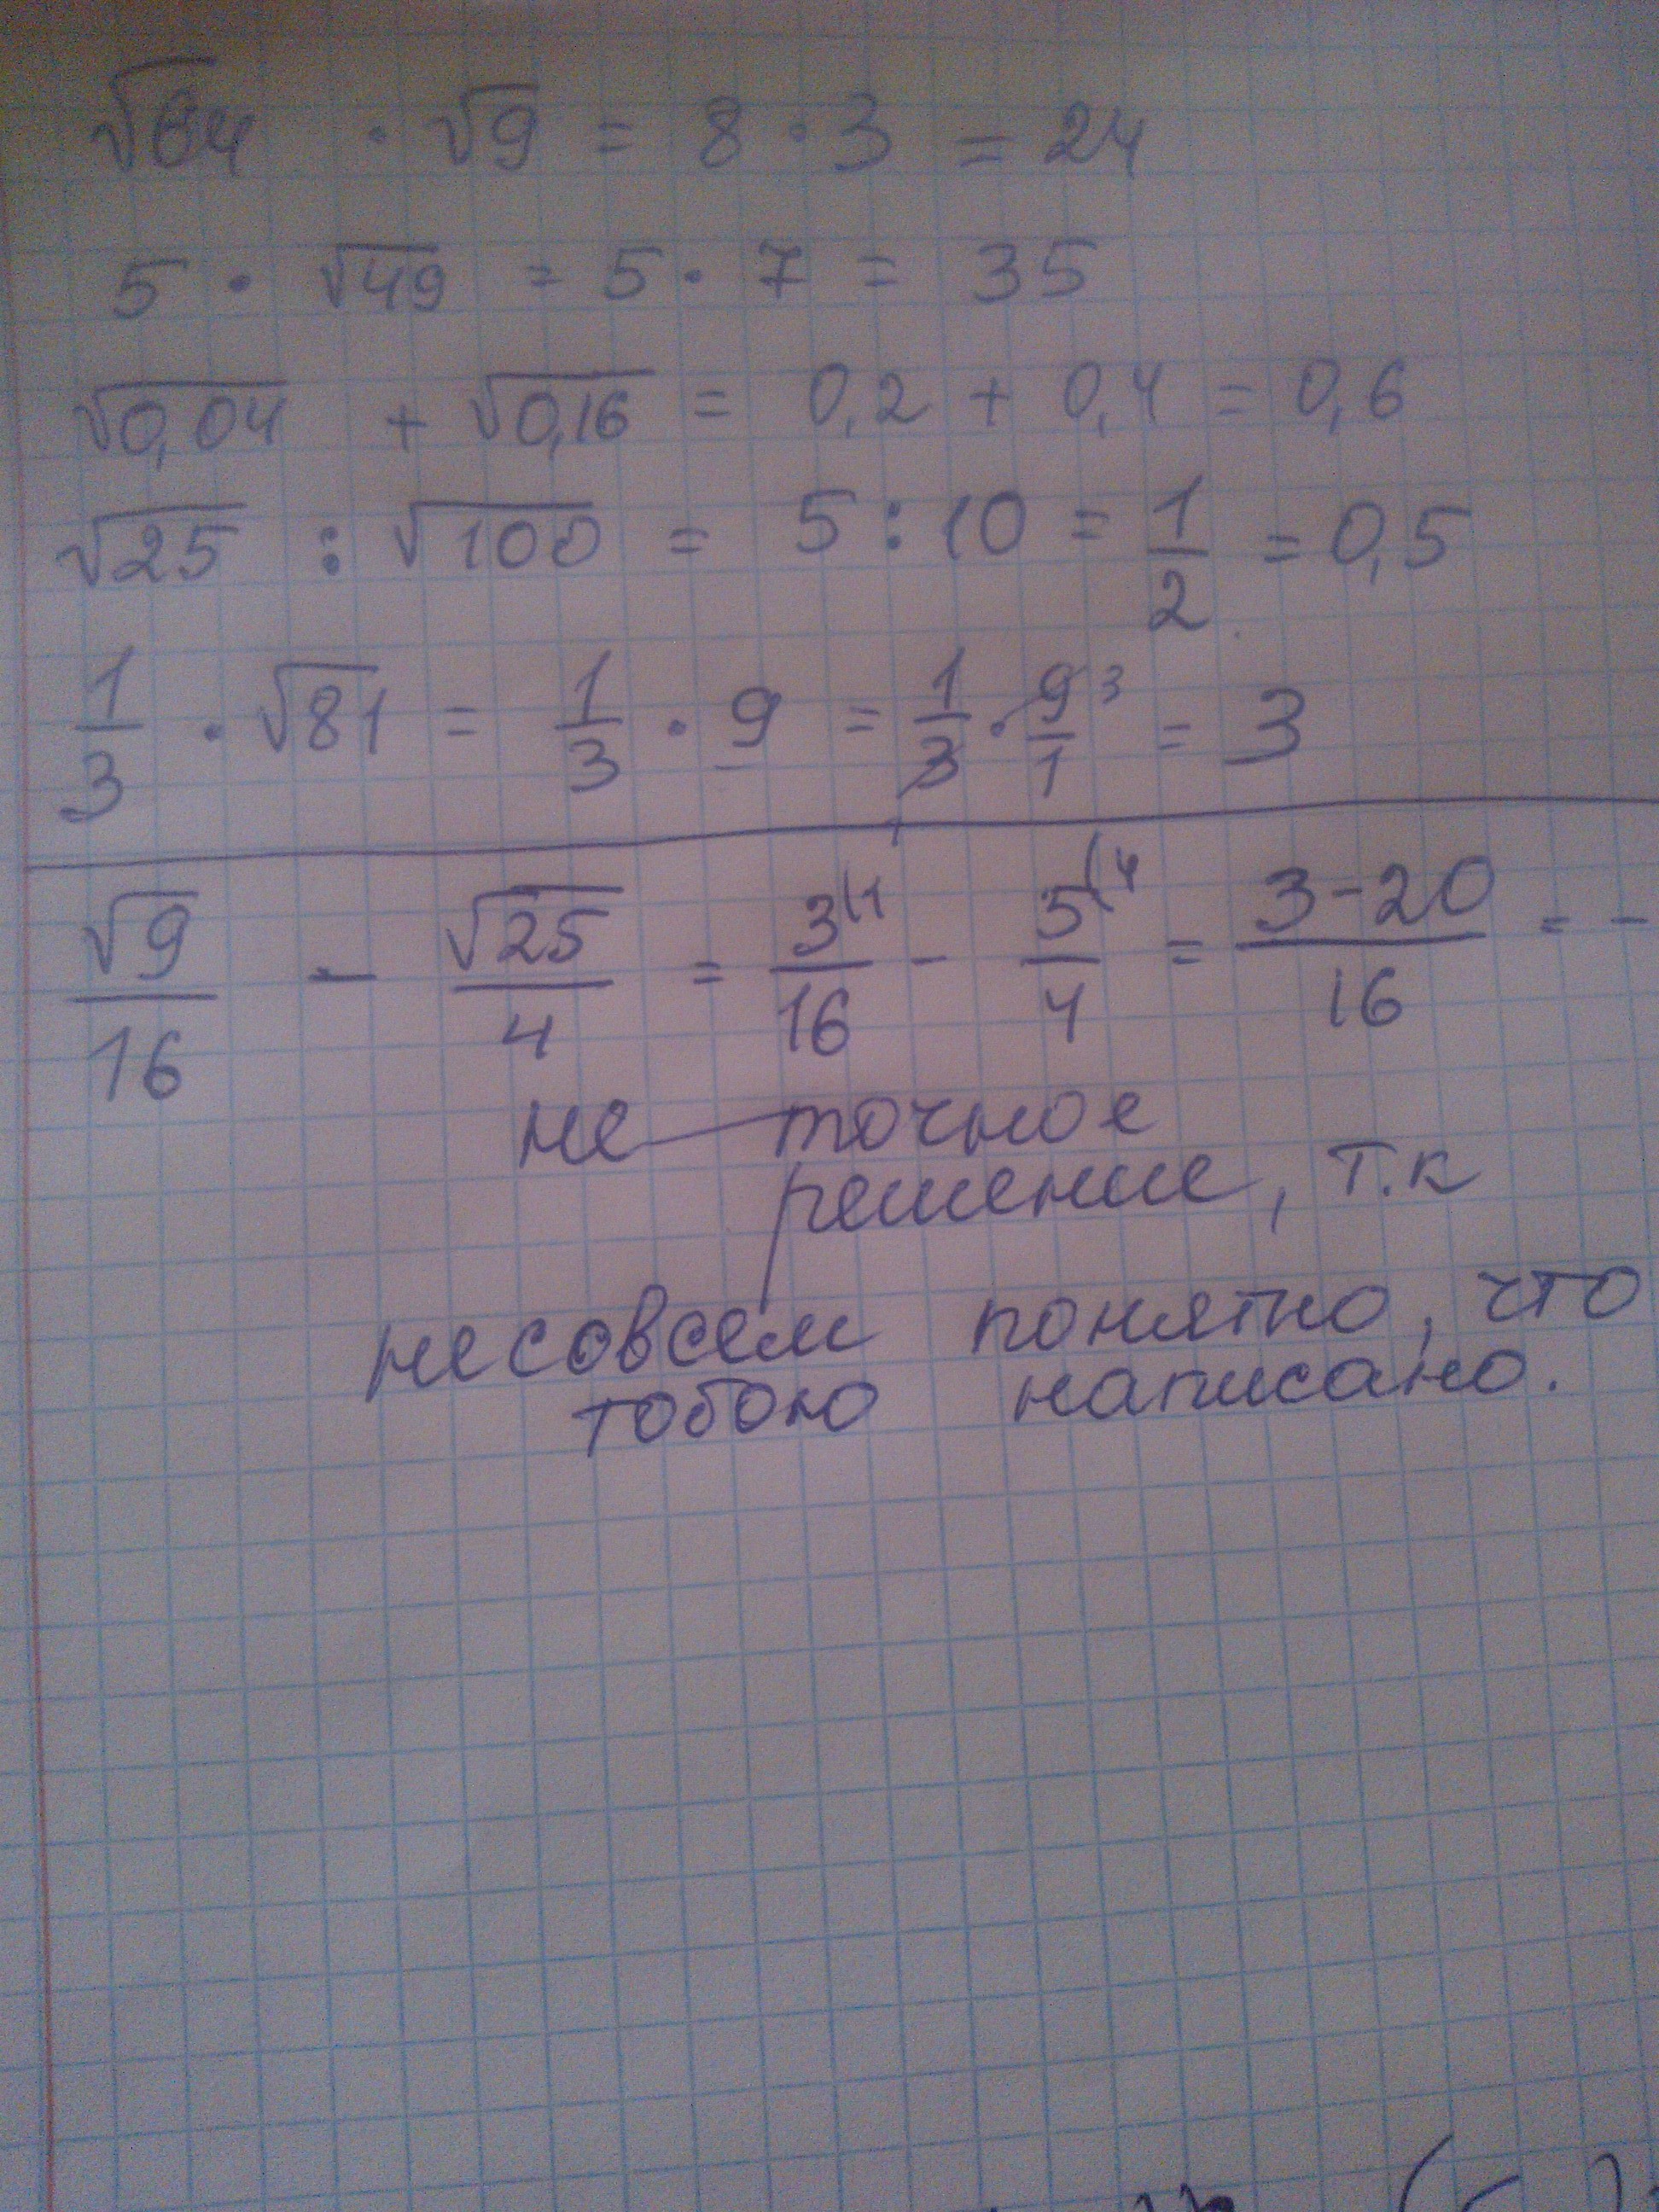 √64 · √9 = 8 · 3 = 24
5 · √49 = 5 · 7 = 35
√0,04 + √0,16 = 0,2 + 0,4 = 0,6
√25 : √100 = 5 : 10 = 1/2 = 0,5
1/3 · √81 = 1/3 · 9 = 1/3 · 9/1 3 = 3
√9/16 - √25/4 = 3(1/16 - 5(4/4 = 3-20/16 = -
не точное
решение, т.к
не совсем понятно, что
тобою написано.